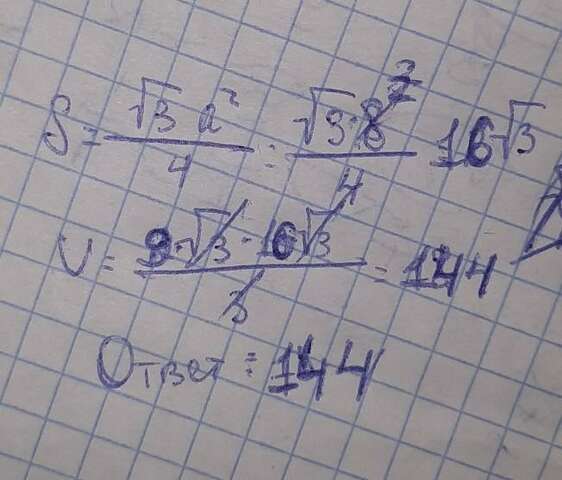 S = √3 a² / 4 = √3·8² / 4 16√3
V = 9·√3 · 16√3 / 3 = 144
Ответ: 144